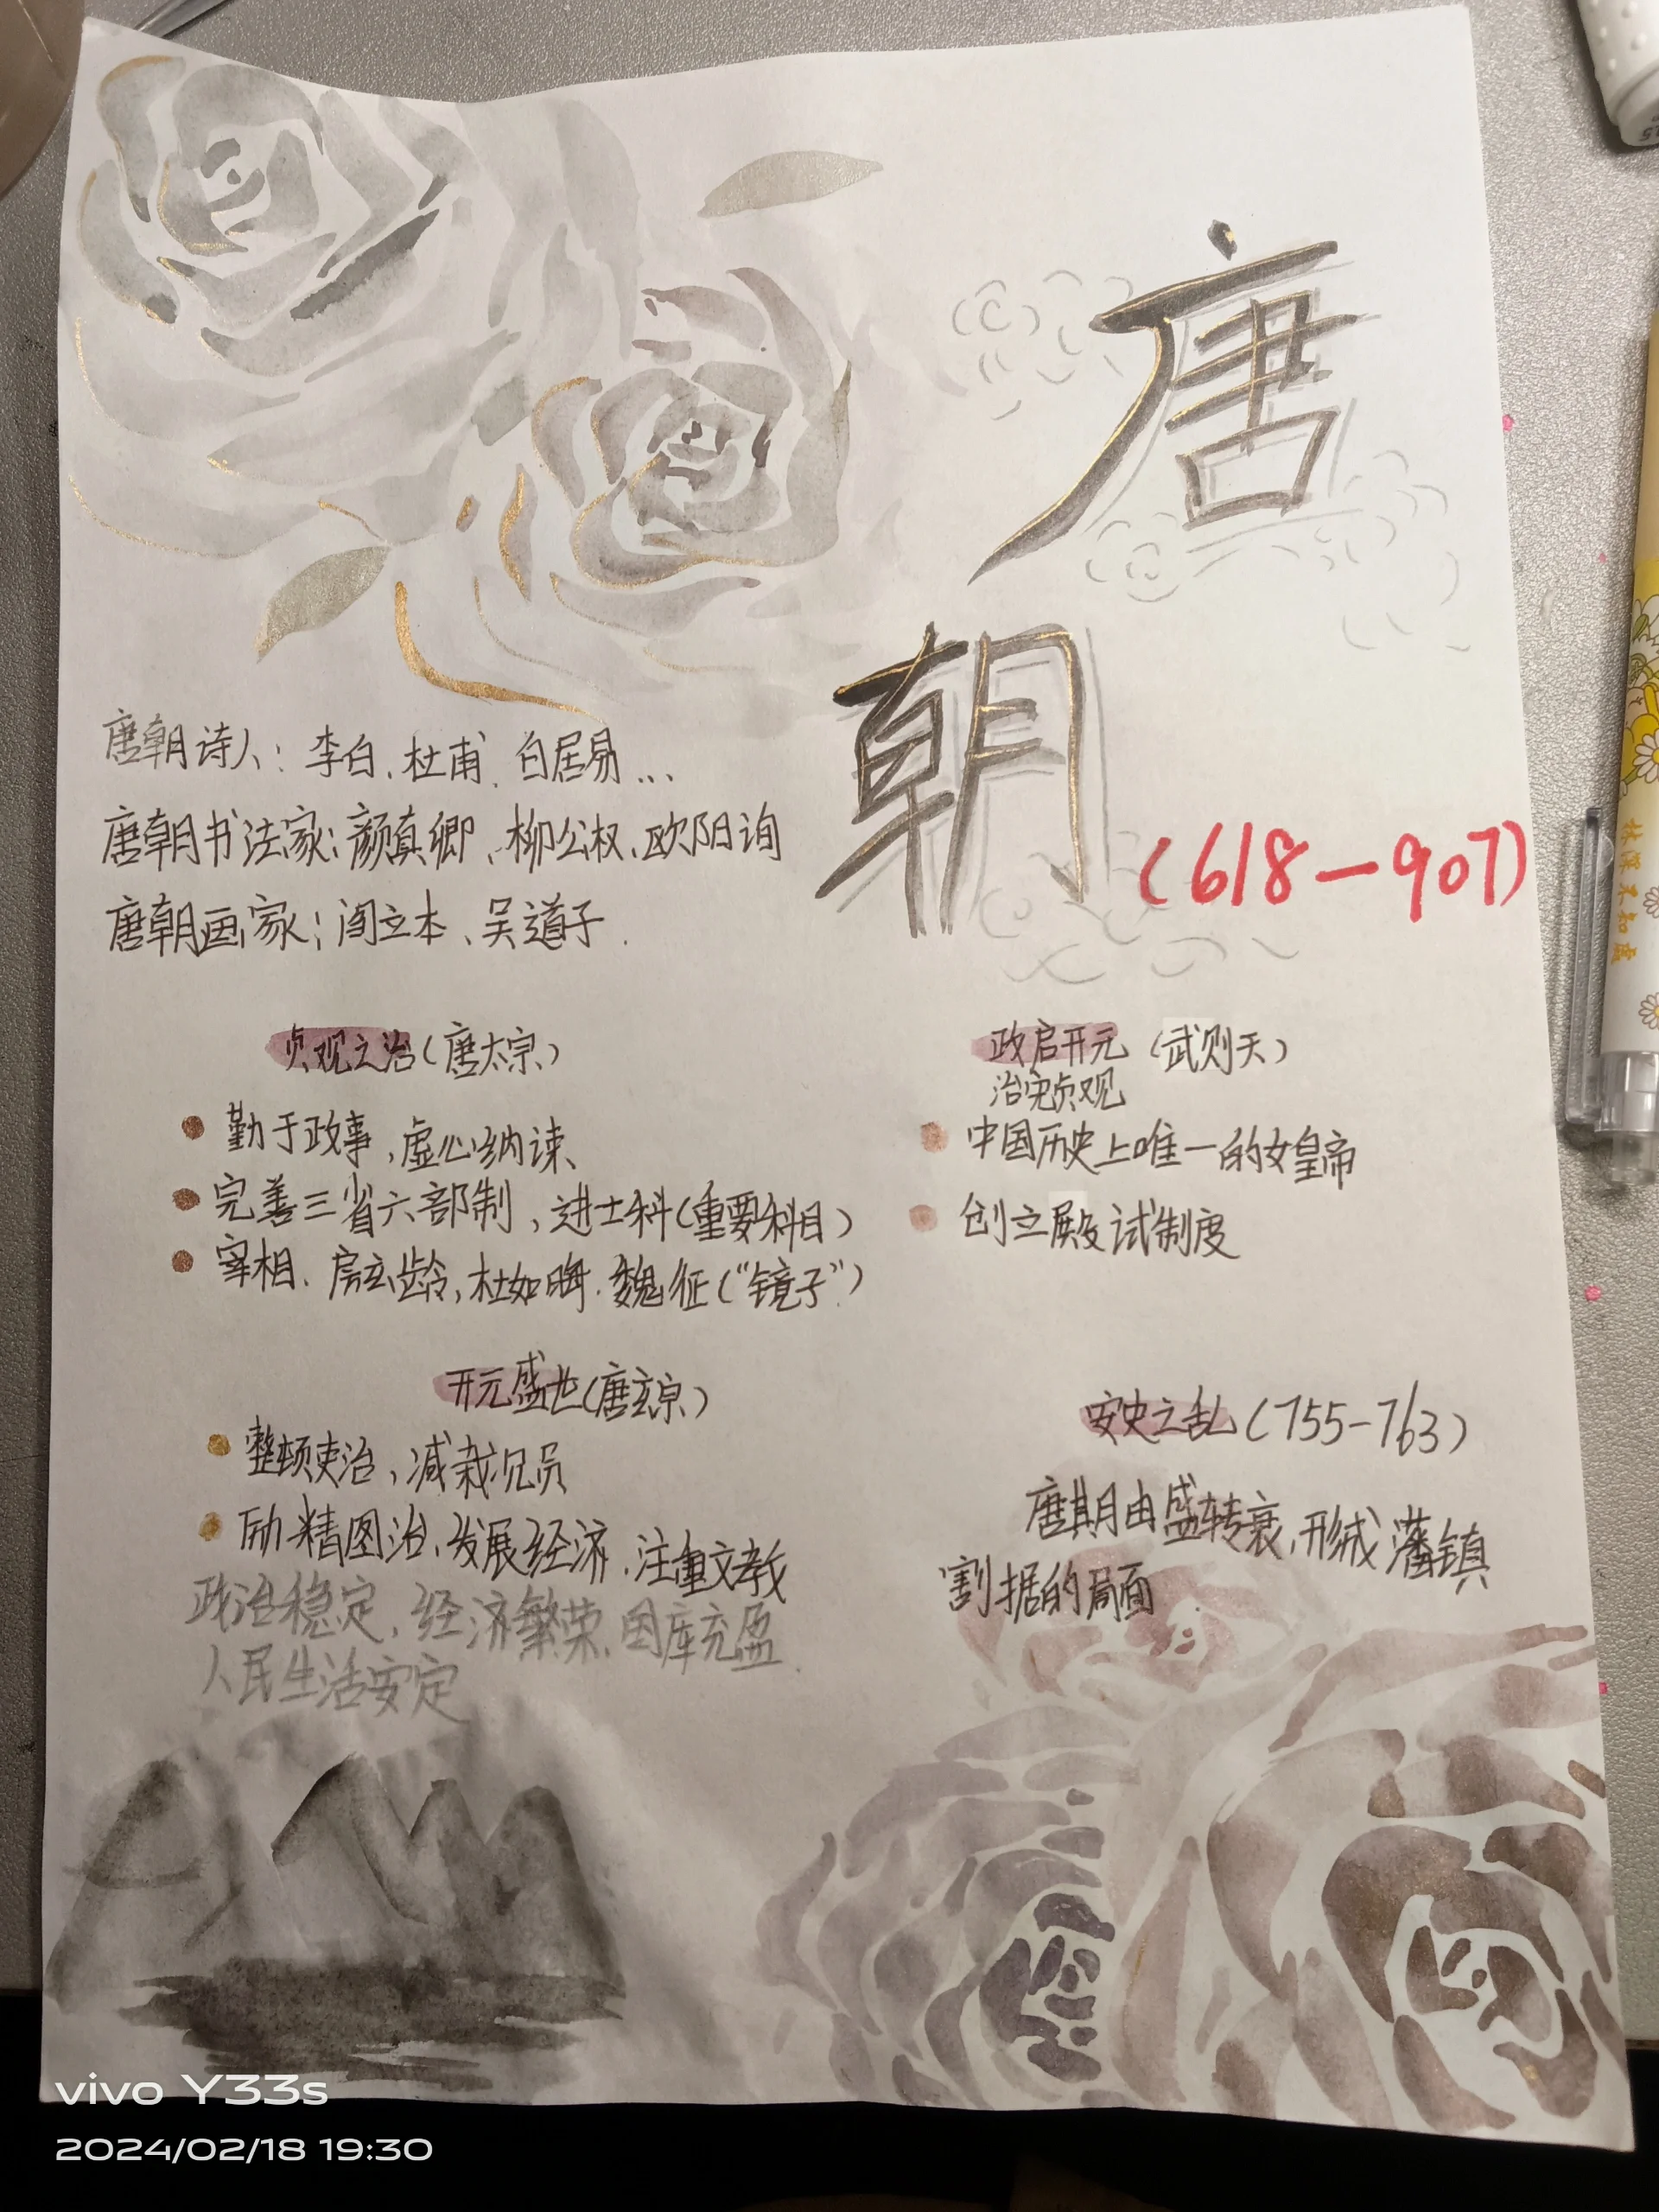 唐
朝
(618—907)
唐朝诗人：李白、杜甫、白居易...
唐朝书法家：颜真卿、柳公权、欧阳询
唐朝画家：阎立本、吴道子.
贞观之治(唐太宗)
勤于政事,虚心纳谏、
完善三省六部制,进士科(重要科目)
宰相、房玄龄,杜如晦.魏征("镜子")
政启开元 (武则天)
治宏贞观
中国历史上唯一的女皇帝
创立殿试制度
开元盛世(唐玄宗)
整顿吏治,减裁冗员
励精图治、发展经济.注重文教
政治稳定,经济繁荣.国库充盈.
人民生活安定
安史之乱(755-763)
唐朝由盛转衰,形成藩镇
割据的局面
林深不知處
vivo Y33s
2024/02/18 19:30